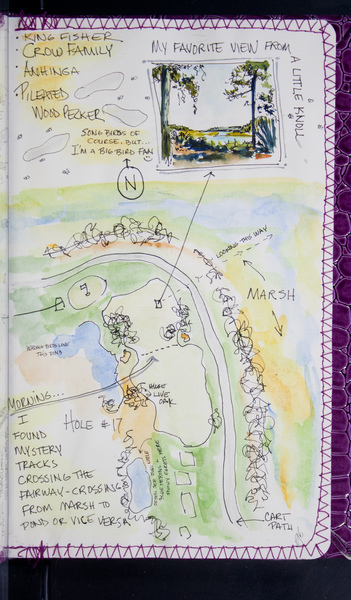 • KING FISHER
• CROW FAMILY
• ANHINGA
• PILEATED
WOOD PECKER
SONG BIRDS OF
COURSE, BUT...
I'M A BIG BIRD FAN
MY FAVORITE VIEW FROM
A LITTLE KNOLL
N
LOOKING THIS WAY
MARSH
THIS POND
HUGE
LIVE
OAK
HOLE #17
MORNING...
I
FOUND
MYSTERY
TRACKS
CROSSING THE
FAIRWAY-CROSSING
FROM MARSH TO
POND OR VICE VERSA
CART
PATH